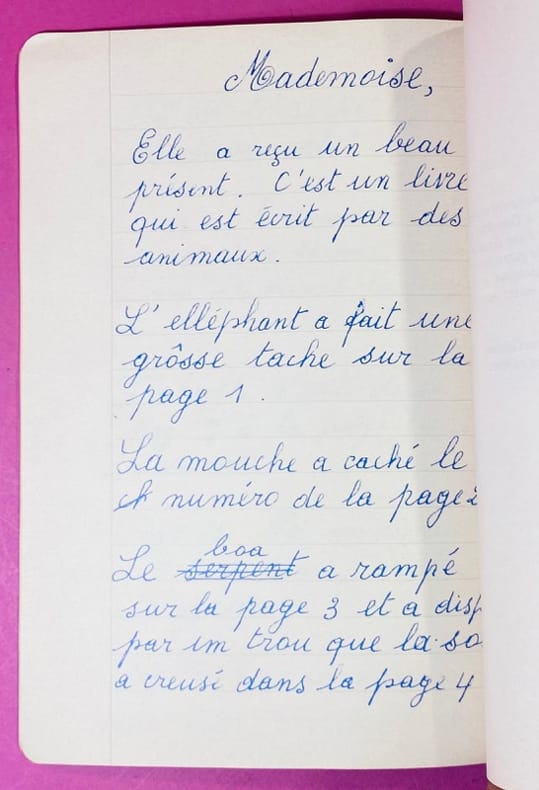 Mademoise,
Elle a reçu un beau
présent. C'est un livre
qui est écrit par des
animaux.
L'elléphant a fait une
grôsse tache sur la
page 1.
La mouche a caché le
numéro de la page 2
boa
Le serpent a rampé
sur la page 3 et a disp
par un trou que la so
a creusé dans la page 4